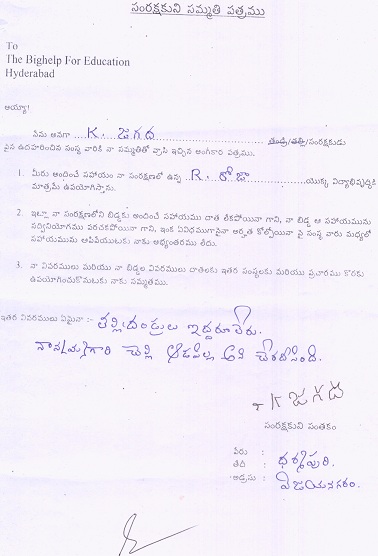 సంరక్షకుని సమ్మతి పత్రము
To
The Bighelp For Education
Hyderabad
అయ్యా!
నేను అనగా ... K. జగద ... తండ్రి/తల్లి/సంరక్షకుడు
పైన ఉదహరించిన సంస్థ వారికి నా సమ్మతితో వ్రాసి ఇచ్చిన అంగీకార పత్రము.
1. మీరు అందించే సహాయం నా సంరక్షణలో ఉన్న ... R. రోజా ... యొక్క విద్యాభివృద్ధికి
మాత్రమే ఉపయోగిస్తాను.
2. ఇట్లు నా సంరక్షణలోని బిడ్డకు అందించే సహాయము దాత లేకపోయినా గాని, నా బిడ్డ ఆ సహాయమును
సద్వినియోగము పరచకపోయినా గాని, ఇంక ఏవిధముగానైనా అర్హత కోల్పోయినా పై సంస్థ వారు మధ్యలో
సహాయమును ఆపివేయుటకు నాకు అభ్యంతరము లేదు.
3. నా వివరములు మరియు నా బిడ్డల వివరములు దాతలకు ఇతర సంస్థలకు మరియు ప్రచారము కొరకు
ఉపయోగించుకొనుటకు నాకు సమ్మతము.
ఇతర వివరములు ఏమైనా :- తల్లిదండ్రులు ఇద్దరూ లేరు.
చెల్లి ఆడపిల్ల
K జగద
సంరక్షకుని సంతకం
పేరు :
తేది : ధర్మపురి.
అడ్రసు : విజయనగరం.